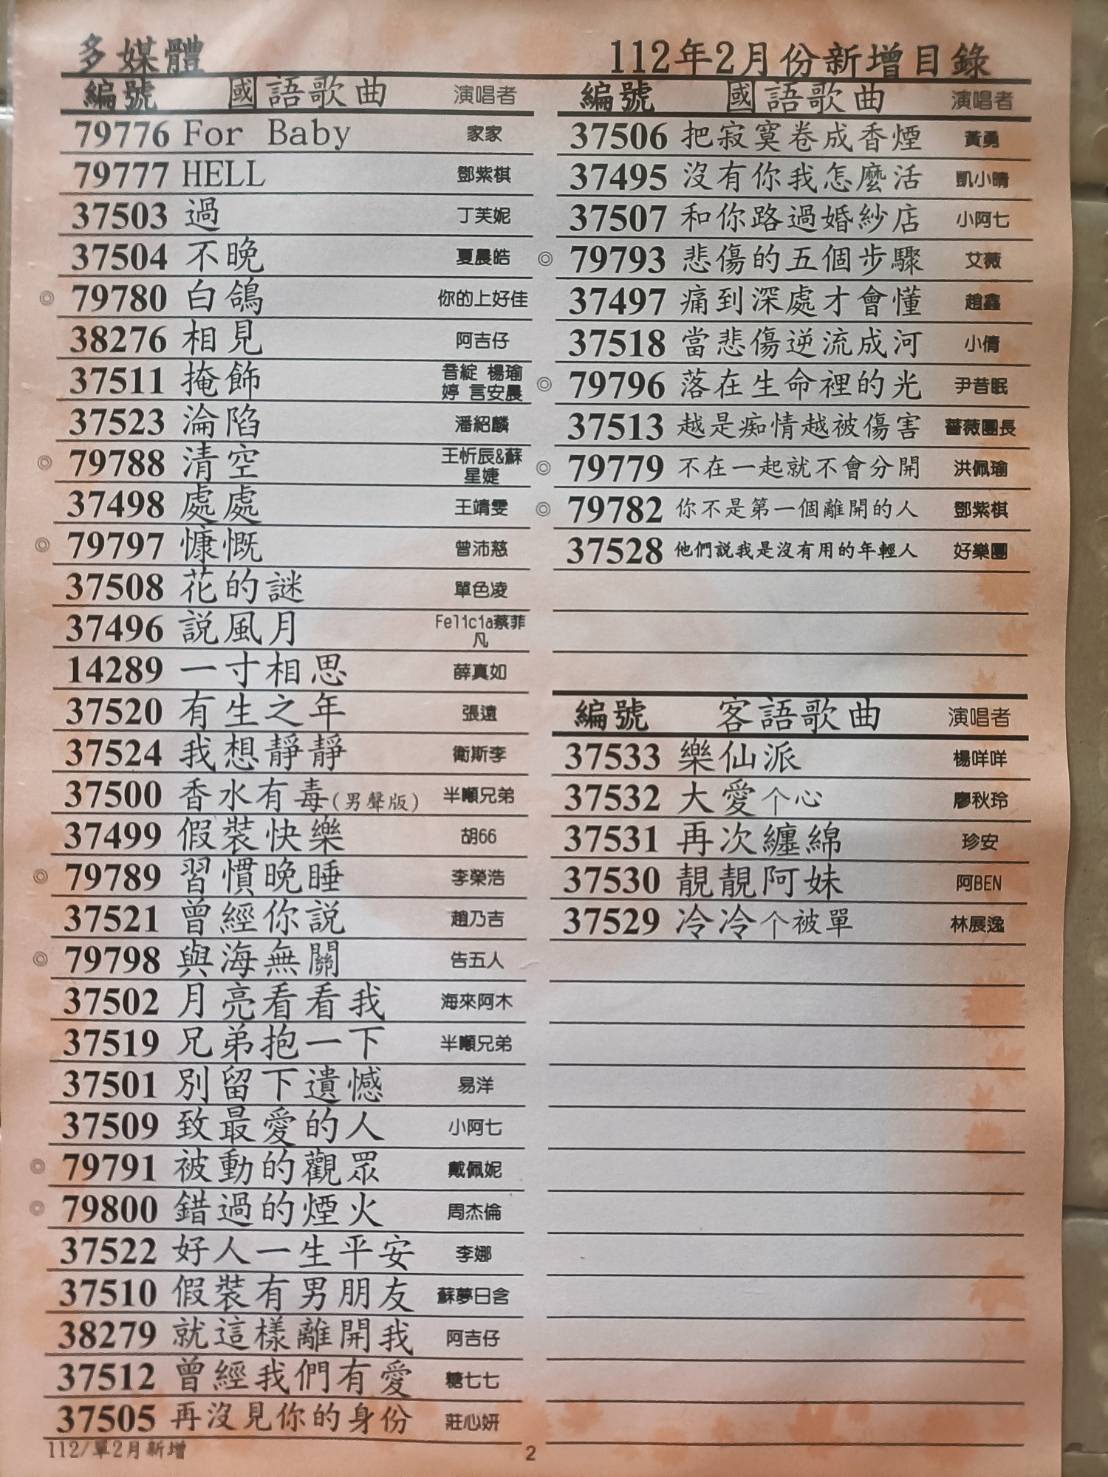 多媒體
112年2月份新增目錄
編號 國語歌曲 演唱者
79776 For Baby 家家
79777 HELL 鄧紫棋
37503 過 丁芙妮
37504 不晚 夏晨皓
◎ 79780 白鴿 你的上好佳
38276 相見 阿吉仔
37511 掩飾 昔綻 楊瑜婷 言安晨
37523 淪陷 潘紹麟
◎ 79788 清空 王忻辰&蘇星婕
37498 處處 王靖雯
◎ 79797 慷慨 曾沛慈
37508 花的謎 單色凌
37496 説風月 Felicia蔡菲凡
14289 一寸相思 薛真如
37520 有生之年 張遠
37524 我想靜靜 衛斯李
37500 香水有毒(男聲版) 半噸兄弟
37499 假裝快樂 胡66
◎ 79789 習慣晚睡 李榮浩
37521 曾經你説 趙乃吉
◎ 79798 與海無關 告五人
37502 月亮看看我 海來阿木
37519 兄弟抱一下 半噸兄弟
37501 別留下遺憾 易洋
37509 致最愛的人 小阿七
◎ 79791 被動的觀眾 戴佩妮
◎ 79800 錯過的煙火 周杰倫
37522 好人一生平安 李娜
37510 假裝有男朋友 蘇夢日含
38279 就這樣離開我 阿吉仔
37512 曾經我們有愛 糖七七
37505 再沒見你的身份 莊心妍
編號 國語歌曲 演唱者
37506 把寂寞卷成香煙 黃勇
37495 沒有你我怎麼活 凱小晴
37507 和你路過婚紗店 小阿七
◎ 79793 悲傷的五個步驟 艾薇
37497 痛到深處才會懂 趙鑫
37518 當悲傷逆流成河 小倩
◎ 79796 落在生命裡的光 尹昔眠
37513 越是痴情越被傷害 薔薇團長
◎ 79779 不在一起就不會分開 洪佩瑜
◎ 79782 你不是第一個離開的人 鄧紫棋
37528 他們說我是沒有用的年輕人 好樂團
編號 客語歌曲 演唱者
37533 樂仙派 楊咩咩
37532 大愛个心 廖秋玲
37531 再次纏綿 珍安
37530 靚靚阿妹 阿BEN
37529 冷冷个被單 林展逸
112/單2月新增
2